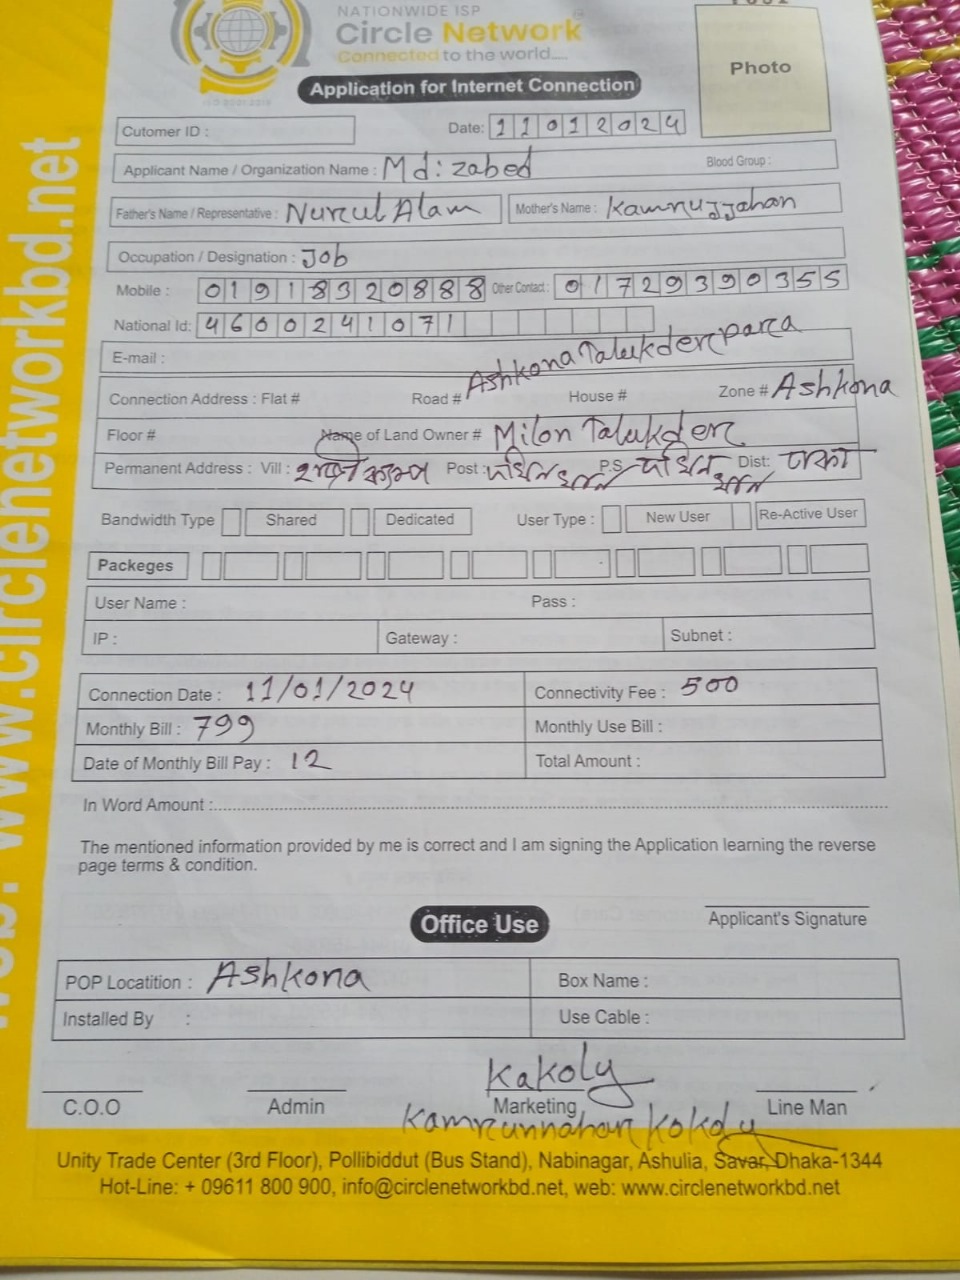 NATIONWIDE ISP
Circle Network
Connected to the world....
ISO 9001:2015
Photo
Application for Internet Connection
Cutomer ID : Date: 11012024
Applicant Name / Organization Name : Md: zabed Blood Group :
Father's Name / Representative : Nurul Alam Mother's Name : Kamrujjahan
Occupation / Designation : Job
Mobile : 01918320888 Other Contact : 01729390355
National Id: 4600241071
E-mail :
Connection Address : Flat # Road # Ashkona Talukder para House # Zone # Ashkona
Floor # Name of Land Owner # Milon Talukder
Permanent Address : Vill : Post : P.S Dist: ঢাকা
Bandwidth Type Shared Dedicated User Type : New User Re-Active User
Packeges
User Name : Pass :
IP : Gateway : Subnet :
Connection Date : 11/01/2024 Connectivity Fee : 500
Monthly Bill : 799 Monthly Use Bill :
Date of Monthly Bill Pay : 12 Total Amount :
In Word Amount :
The mentioned information provided by me is correct and I am signing the Application learning the reverse
page terms & condition.
Applicant's Signature
Office Use
POP Locatition : Ashkona Box Name :
Installed By : Use Cable :
Kakoly
C.O.O Admin Marketing Line Man
Kamrunnahar Kokoly
Unity Trade Center (3rd Floor), Pollibiddut (Bus Stand), Nabinagar, Ashulia, Savar, Dhaka-1344
Hot-Line: + 09611 800 900, info@circlenetworkbd.net, web: www.circlenetworkbd.net
www.circlenetworkbd.net